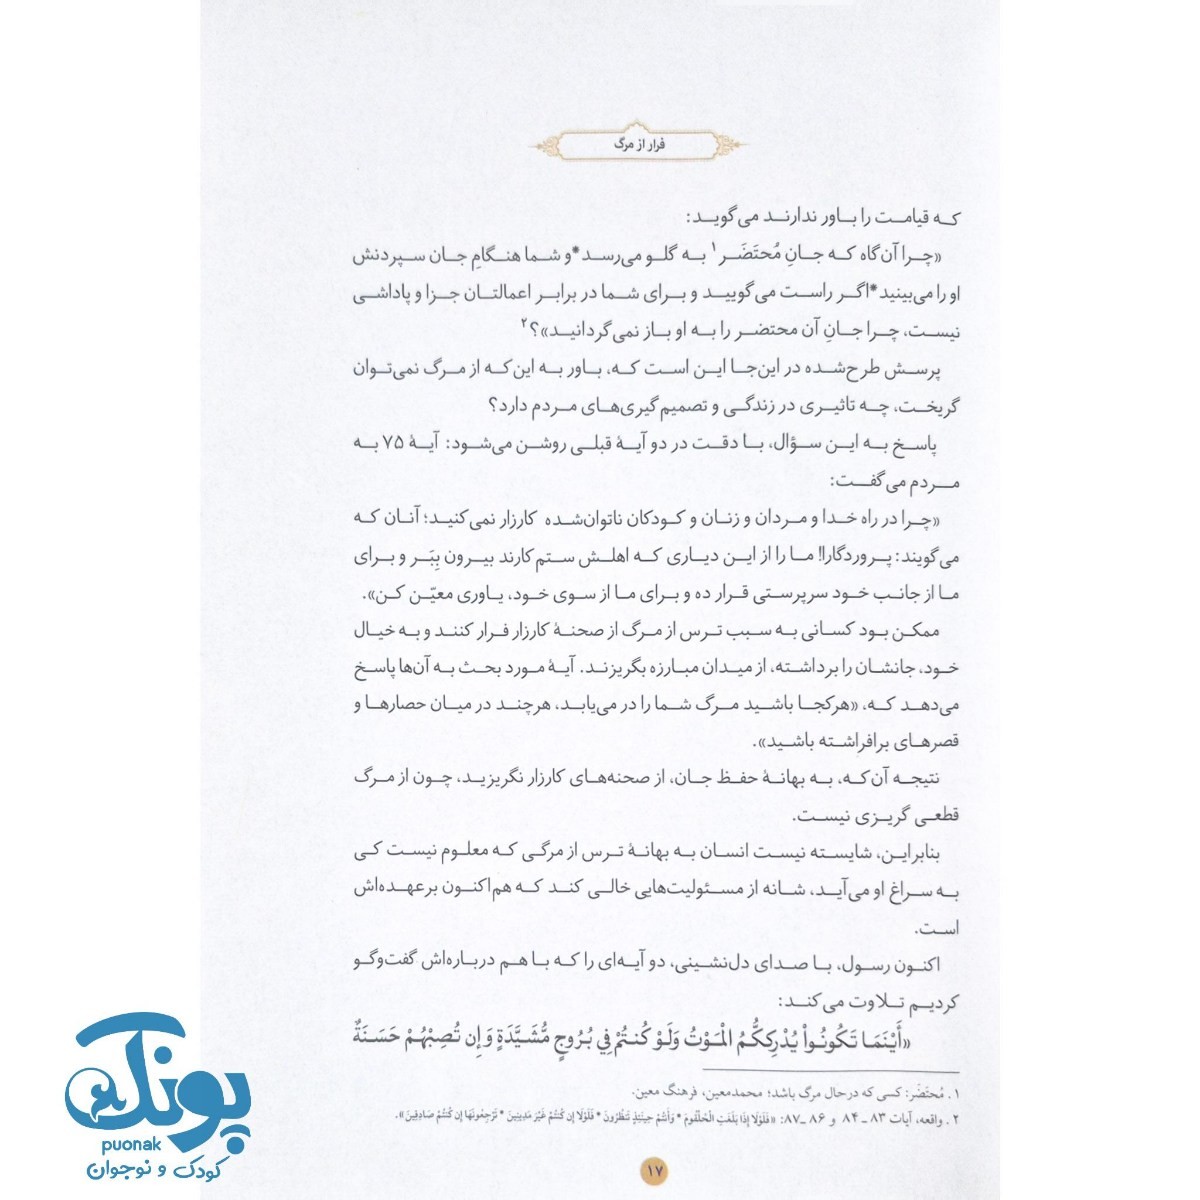 فرار از مرگ
که قیامت را باور ندارند می‌گوید:
«چرا آن‌گاه که جانِ مُحتَضَر۱ به گلو می‌رسد*و شما هنگامِ جان سپردنش
او را می‌بینید*اگر راست می‌گویید و برای شما در برابر اعمالتان جزا و پاداشی
نیست، چرا جانِ آن محتضر را به او باز نمی‌گردانید»؟۲
پرسش طرح‌شده در این‌جا این است که، باور به این‌که از مرگ نمی‌توان
گریخت، چه تاثیری در زندگی و تصمیم‌گیری‌های مردم دارد؟
پاسخ به این سؤال، با دقت در دو آیهٔ قبلی روشن می‌شود: آیهٔ ۷۵ به
مردم می‌گفت:
«چرا در راه خدا و مردان و زنان و کودکان ناتوان‌شده کارزار نمی‌کنید؛ آنان که
می‌گویند: پروردگارا! ما را از این دیاری که اهلش ستم‌کارند بیرون بِبَر و برای
ما از جانب خود سرپرستی قرار ده و برای ما از سوی خود، یاوری معیّن کن».
ممکن بود کسانی به سبب ترس از مرگ از صحنهٔ کارزار فرار کنند و به خیال
خود، جانشان را برداشته، از میدان مبارزه بگریزند. آیهٔ مورد بحث به آن‌ها پاسخ
می‌دهد که، «هرکجا باشید مرگ شما را در می‌یابد، هرچند در میان حصارها و
قصرهای برافراشته باشید».
نتیجه آن‌که، به بهانهٔ حفظ جان، از صحنه‌های کارزار نگریزید، چون از مرگ
قطعی گریزی نیست.
بنابراین، شایسته نیست انسان به بهانهٔ ترس از مرگی که معلوم نیست کی
به سراغ او می‌آید، شانه از مسئولیت‌هایی خالی کند که هم‌اکنون برعهده‌اش
است.
اکنون رسول، با صدای دل‌نشینی، دو آیه‌ای را که با هم درباره‌اش گفت‌وگو
کردیم تلاوت می‌کند:
«أَيْنَمَا تَكُونُواْ يُدْرِككُّمُ الْمَوْتُ وَلَوْ كُنتُمْ فِي بُرُوجٍ مُّشَيَّدَةٍ وَإِن تُصِبْهُمْ حَسَنَةٌ
۱. مُحتَضَر: کسی که درحال مرگ باشد؛ محمدمعین، فرهنگ معین.
۲. واقعه، آیات ۸۳ـ ۸۴ و ۸۶ ـ۸۷: «فَلَوْلَا إِذَا بَلَغَتِ الْحُلْقُومَ * وَأَنتُمْ حِينَئِذٍ تَنظُرُونَ * فَلَوْلَا إِن كُنتُمْ غَيْرَ مَدِينِينَ * تَرْجِعُونَهَا إِن كُنتُمْ صَادِقِينَ».
۱۷
پونک
puonak
کودک و نوجوان